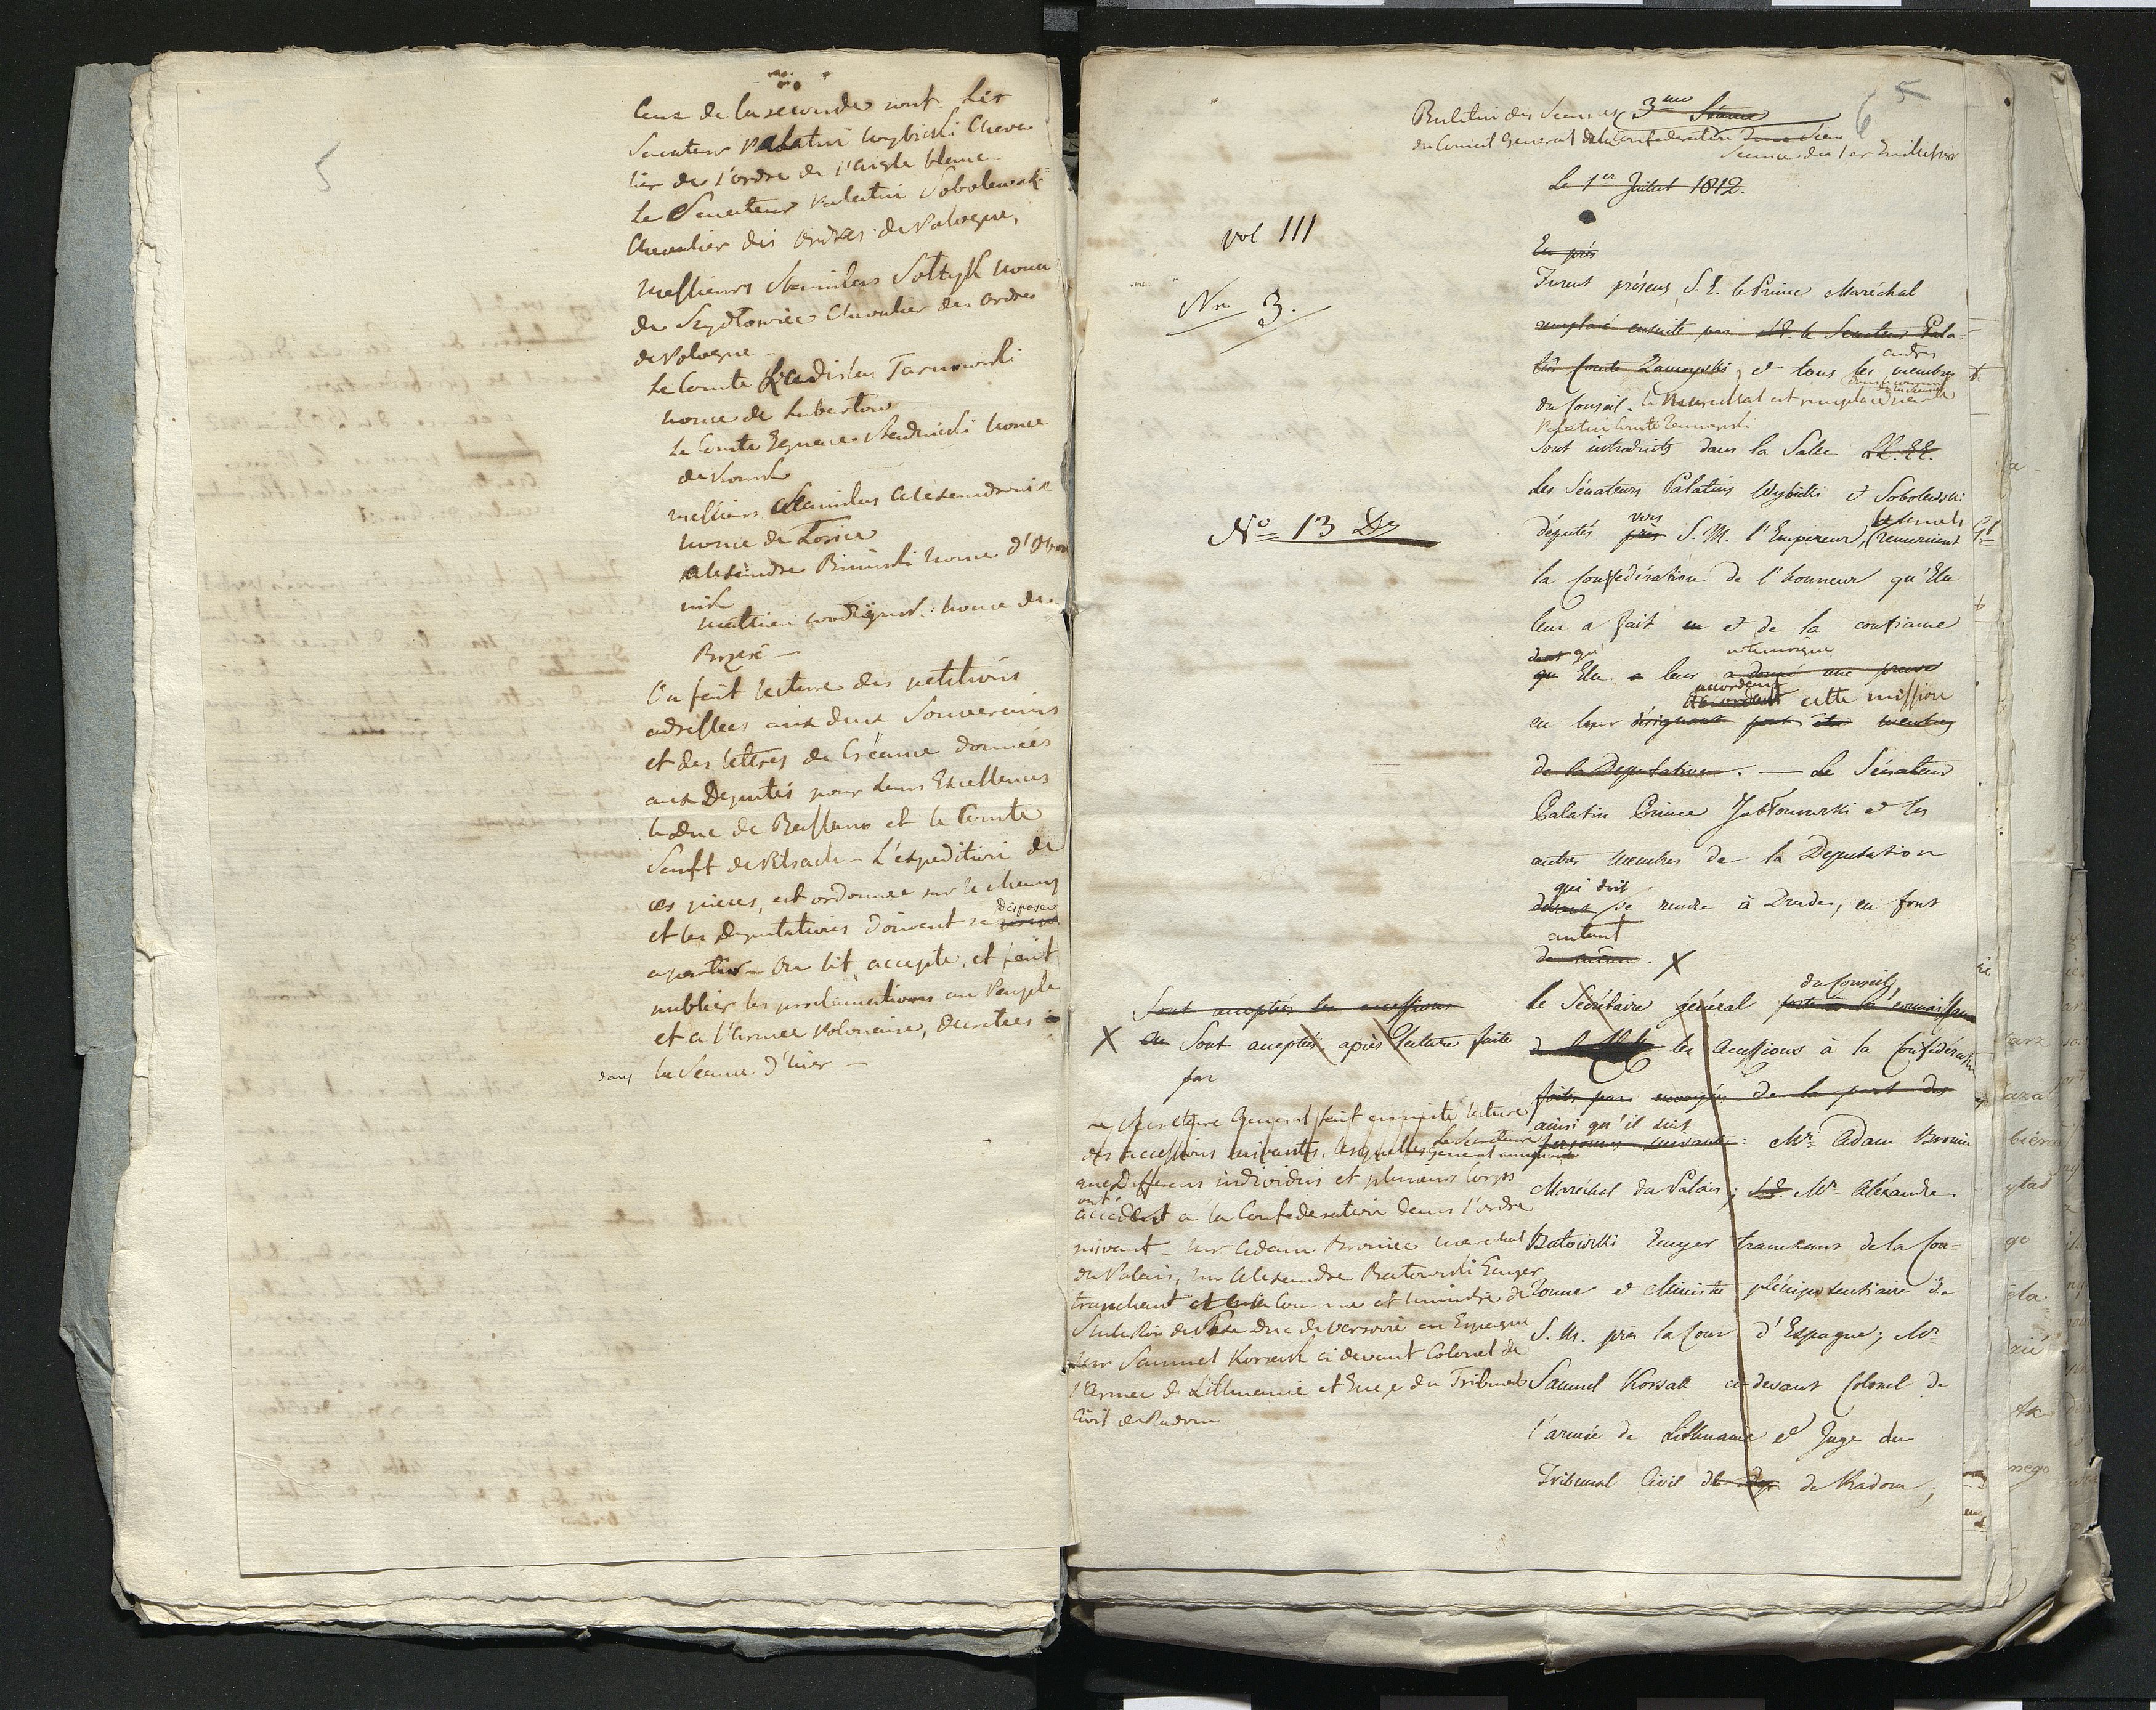 5
Ceux de la seconde sont. Les
Senateur Palatin Wybicki Cheva
lier de l'ordre de l'aigle blanc
Le Senateur Palatin Sobolewski
Chevalier des ordres de Pologne,
Messieurs Stanislas Sołtyk nonce
de Szydłowiec Chevalier des ordres
de Pologne
Le Comte Ladislas Tarnowski
nonce de
Le Comte Ignace nonce
de
Messieurs Stanislas Alexandrowicz
nonce de Łosice
Alexandre Binioski nonce d'
nik
Mathieu nonce de
Brzesc
On fait lecture des petitions
adressées aux deux Souverains
et des lettres de Créance données
aux Deputés pour Leurs Excellences
le Duc de Bassano et le Comte
Senft de Pilsach - L'expedition de
ces pieces, est ordonnée sur le champ
et les Deputations doivent se disposer
a partir - On lit, accepte, et fait
publier les proclamations au Peuple
et a l'Armée Polonaise, decretees
dans la Seance d'hier -
6 5
Bulletin des Seances 3me Séance
du Conseil General de la Confederation
Seance du 1er Juillet
Le 1er Juillet 1812.
vol III
Nr 3.
No 13
En prés
Furent présens S. E. le Prince Maréchal
remplacé ensuite par S.E. le Senateur Pala-
tin Comte Zamoyski, et tous les autres membres
du Conseil. Le Marechal est remplacé par le
Palatin Comte Zamoyski
Sont introduits dans la Salle LL. EE.
Les Sénateurs Palatins Wybicki et Sobolewski
députés près vers S. M. l'Empereur, lesquels remercient
la Confédération de l'honneur qu'Elle
leur a fait et de la confiance
dont qu' a temoigné
qu Elle a leur a donné une preuve
en leur désignant pour être membres accordant cette mission
de la Deputation. — Le Sénateur
Palatin Prince Jabłonowski et les
autres membres de la Deputation
qui doit
devant se rendre à Dresde, en font
autant
de même. X
Le Secrétaire général du Conseil, porte à la connaissance
les Accessions à la Confédération
faites par envoyées de la part des
ainsi qu'il suit
personnes suivantes: Mr. Adam Bronic
Maréchal du Palais; Mr. Aléxandre
Batowski Ecuyer tranchant de la Cou-
ronne et Ministre plénipotentiaire de
S. M. près la Cour d'Espagne; Mr
Samuel Korsak ci devant Colonel de
l'armée de Lithuanie et Juge du
Tribunal Civil de Dep. de Radom;
Sont acceptées les accessions
X Sont acceptées après lecture faite
par
Le Secretaire General fait ensuite lecture
des accessions suivantes, lesquelles Le Secretaire General annonce
que Differens individus et plusieurs Corps
ont
accédent a la Confederation dans l'ordre
suivant - Mr Adam Broniec Marechal
du Palais, Mr Alexandre Batowski Ecuyer
tranchant de la Couronne et Ministre de
S M le Roi de Saxe Duc de Varsovie en Espagne
Mr Samuel Korsak ci devant Colonel de
l'Armée de Lithuanie et Juge du Tribunal
Civil de Radom